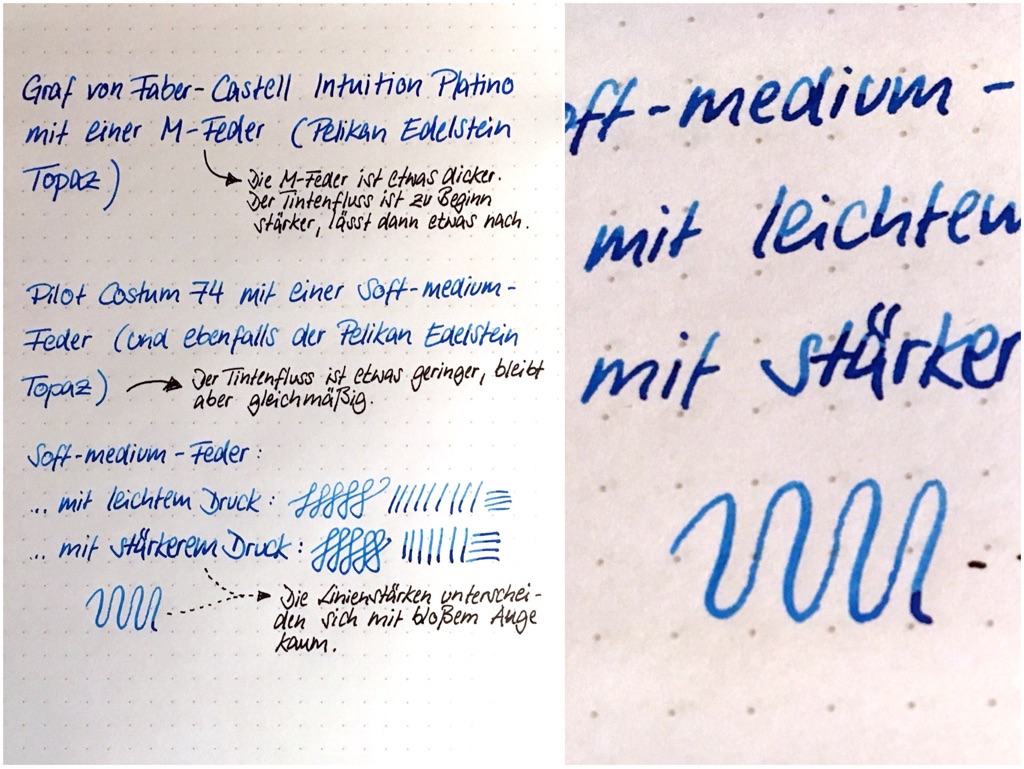 Graf von Faber-Castell Intuition Platino
mit einer M-Feder (Pelikan Edelstein
Topaz)
Die M-Feder ist etwas dicker.
Der Tintenfluss ist zu Beginn
stärker, lässt dann etwas nach.
Pilot Costum 74 mit einer Soft-medium-
Feder (und ebenfalls der Pelikan Edelstein
Topaz)
Der Tintenfluss ist etwas geringer, bleibt
aber gleichmäßig.
Soft-medium-Feder:
... mit leichtem Druck:
... mit stärkerem Druck:
Die Linienstärken unterschei-
den sich mit bloßem Auge
kaum.
oft-medium-
mit leichtem
mit stärker